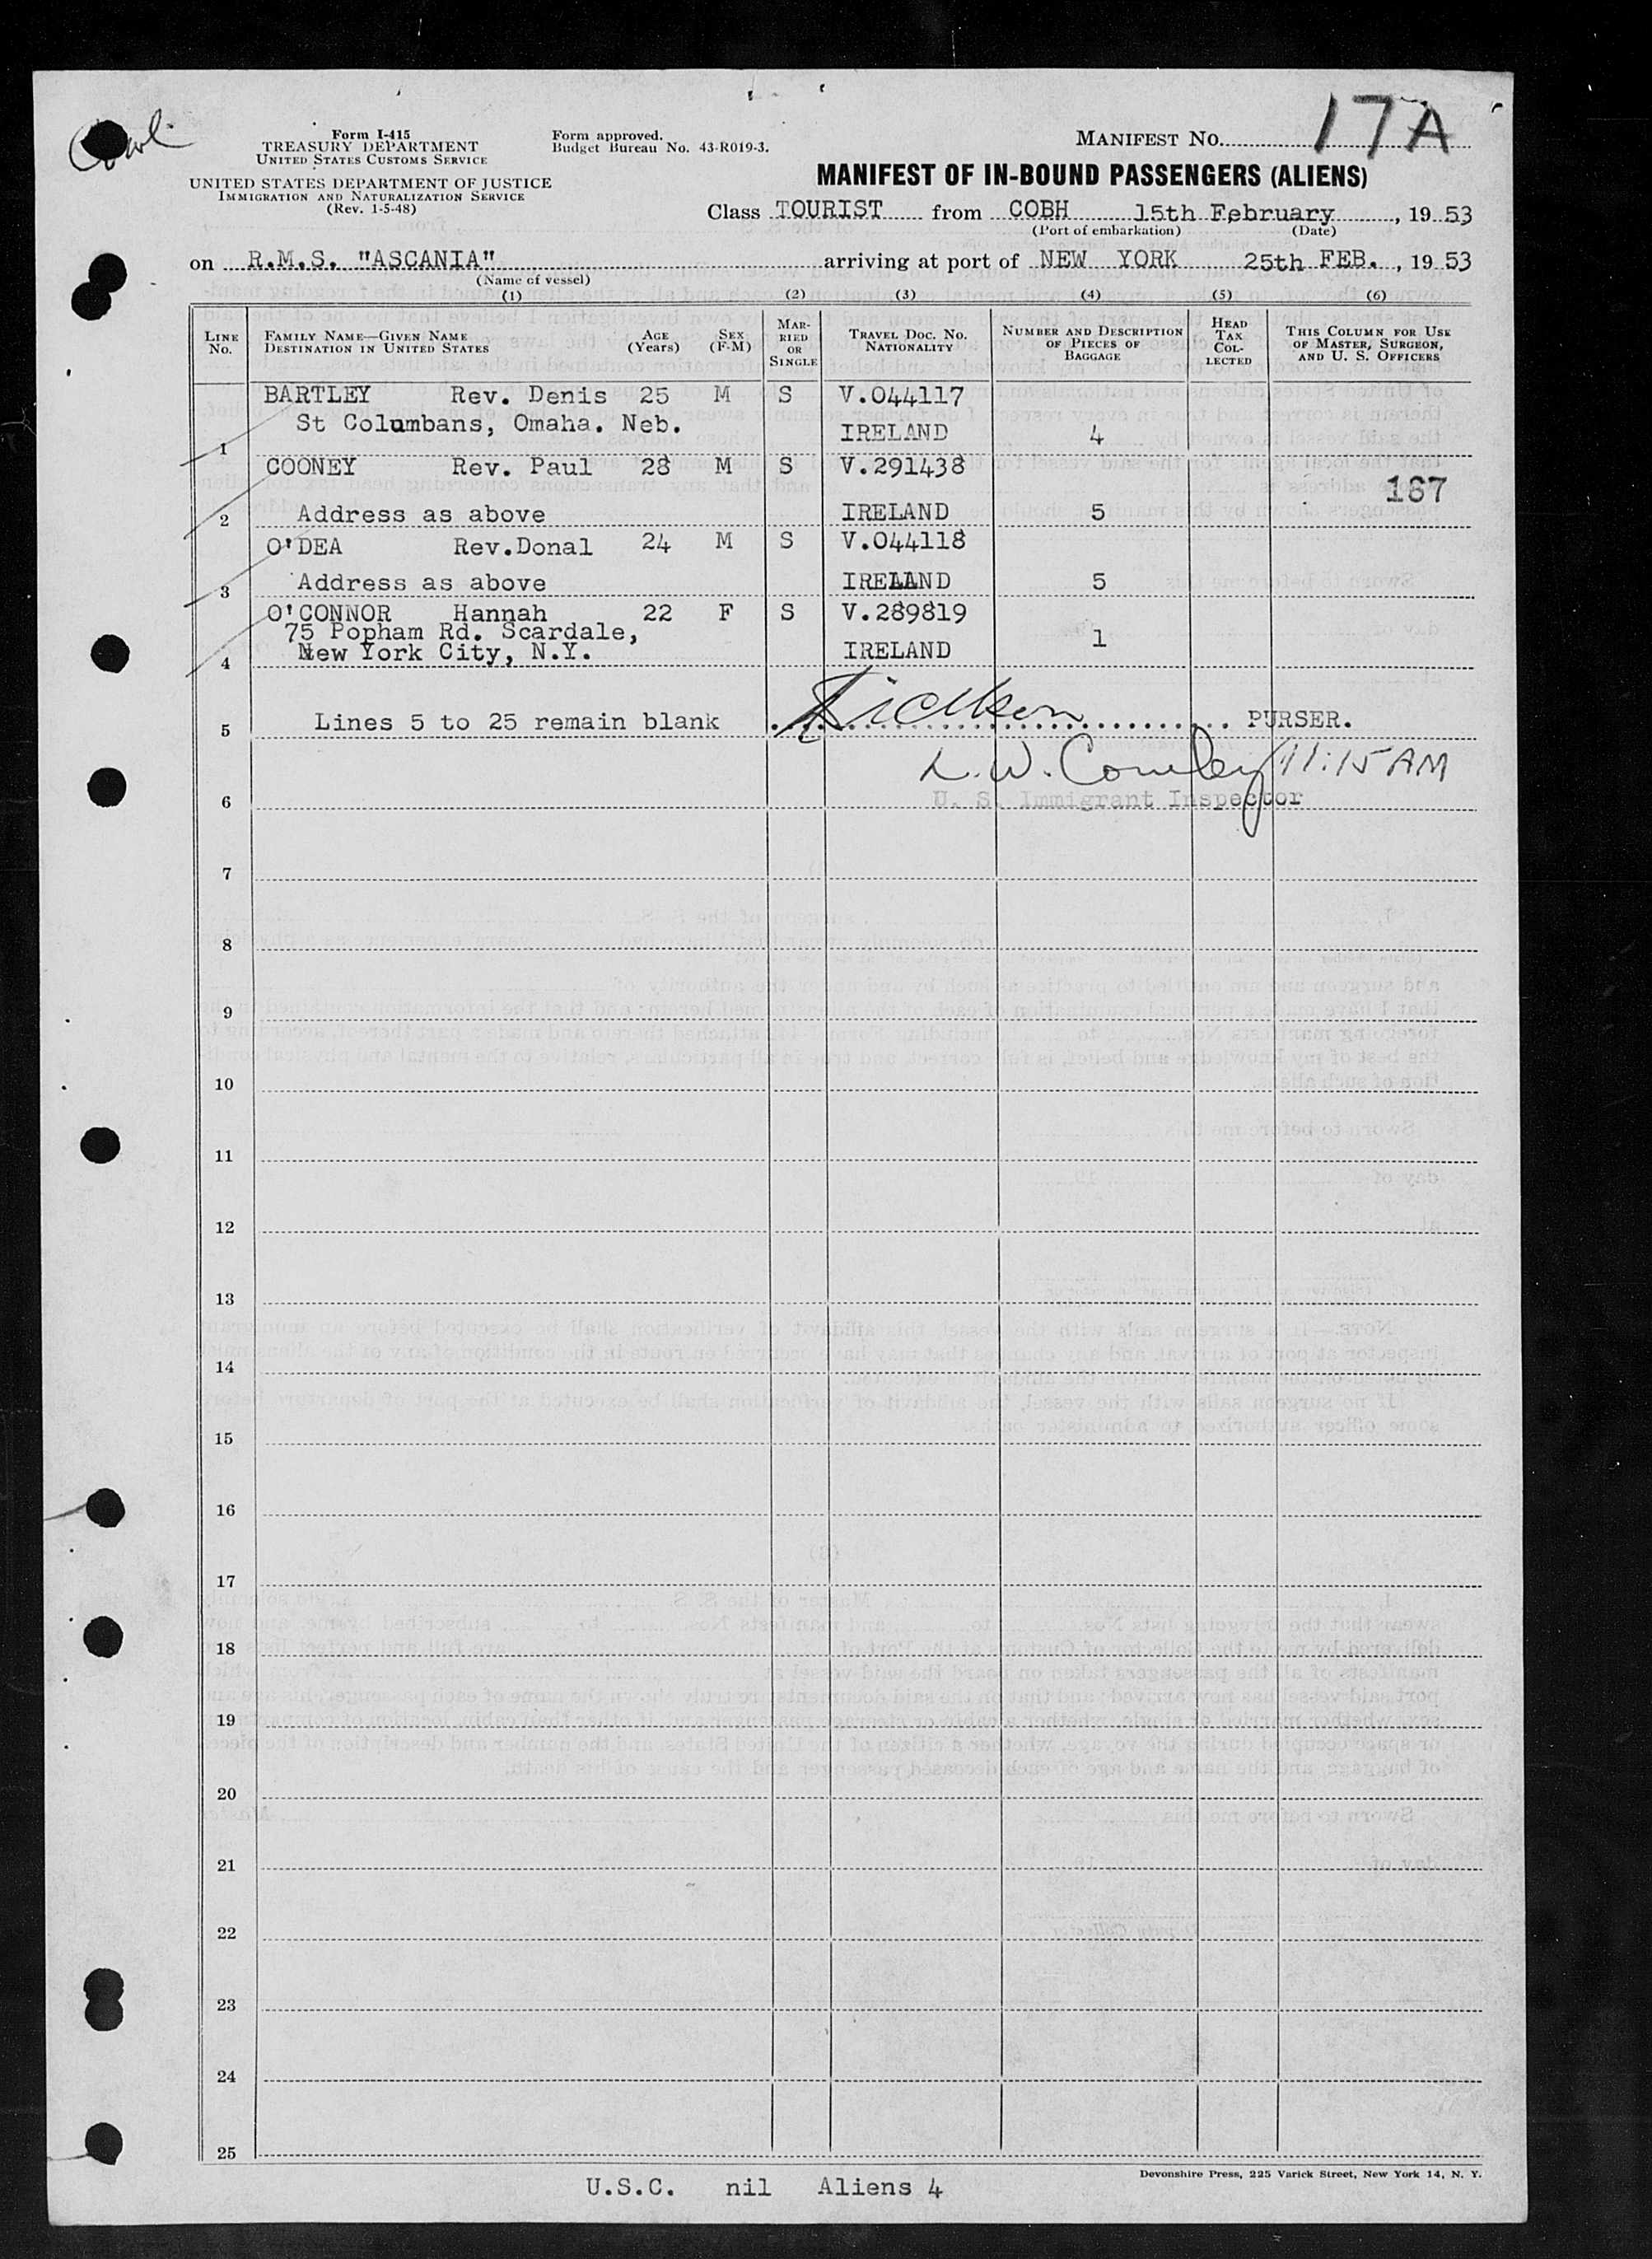 Form I-415
TREASURY DEPARTMENT
UNITED STATES CUSTOMS SERVICE
UNITED STATES DEPARTMENT OF JUSTICE
IMMIGRATION AND NATURALIZATION SERVICE
(Rev. 1-5-48)
Form approved.
Budget Bureau No. 43-R019-3.
MANIFEST NO. 17A
MANIFEST OF IN-BOUND PASSENGERS (ALIENS)
Class TOURIST from COBH 15th February, 19 53
(Port of embarkation) (Date)
on R.M.S. "ASCANIA" arriving at port of NEW YORK 25th FEB., 19 53
(Name of vessel)
(1) (2) (3) (4) (5) (6)
LINE No. FAMILY NAME—GIVEN NAME DESTINATION IN UNITED STATES AGE (Years) SEX (F-M) MARRIED OR SINGLE TRAVEL DOC. NO. NATIONALITY NUMBER AND DESCRIPTION OF PIECES OF BAGGAGE HEAD TAX COLLECTED THIS COLUMN FOR USE OF MASTER, SURGEON, AND U. S. OFFICERS
BARTLEY Rev. Denis 25 M S V.044117
St Columbans, Omaha. Neb.
1 IRELAND 4
COONEY Rev. Paul 28 M S V.291438
167
2 Address as above IRELAND 5
O'DEA Rev.Donal 24 M S V.044118
3 Address as above IRELAND 5
O'CONNOR Hannah 22 F S V.289819
75 Popham Rd. Scardale,
4 New York City, N.Y. IRELAND 1
5 Lines 5 to 25 remain blank PURSER.
L.W. Cowley 11:15 AM
6 U. S. Immigrant Inspector
7
8
9
10
11
12
13
14
15
16
17
18
19
20
21
22
23
24
25
Devonshire Press, 225 Varick Street, New York 14, N. Y.
U.S.C. nil Aliens 4